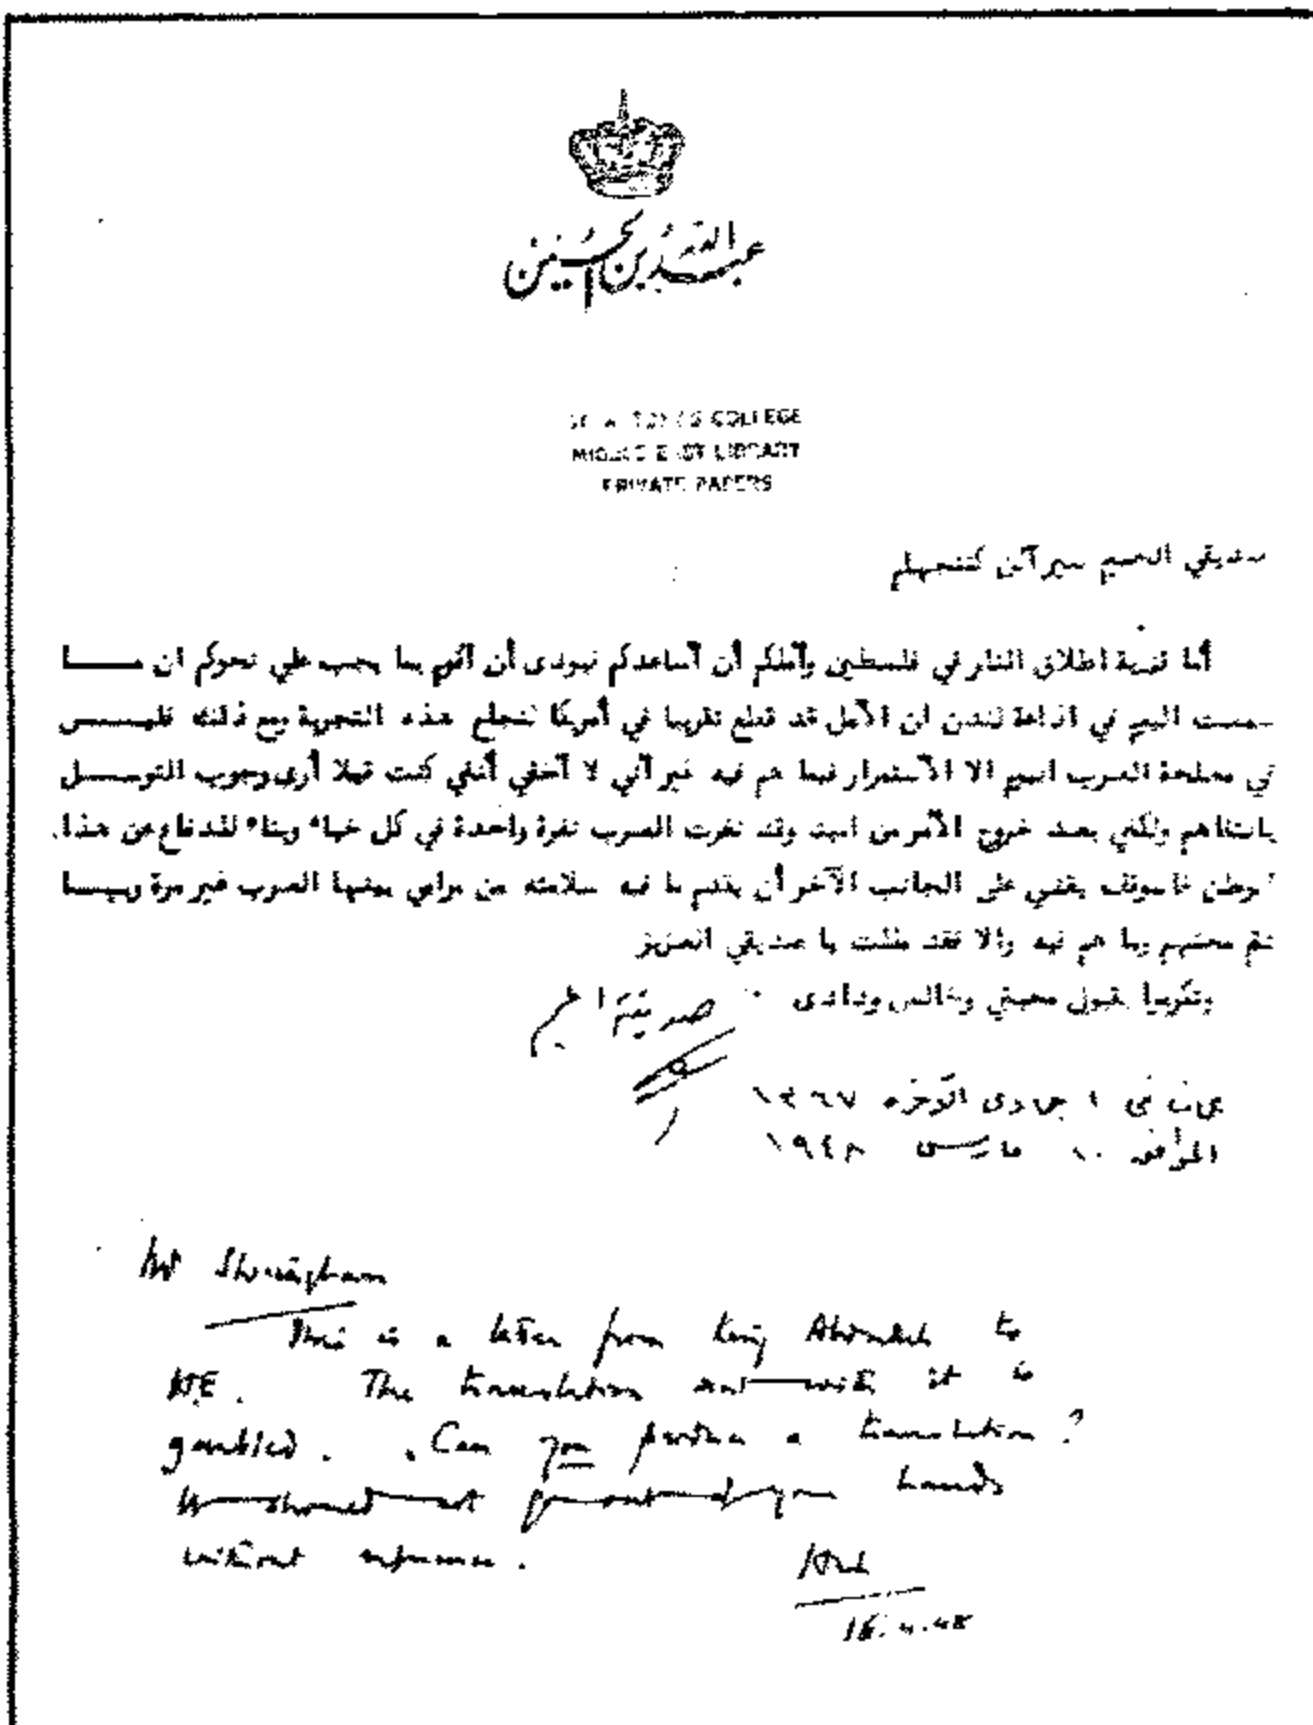 عبد الله بن الحسين
COLLEGE
MIDDLE EAST LIBRARY
PRIVATE PAPERS
صديقي الحميم سير آلن كننجهام
أما قضية اطلاق النار في فلسطين وأملكم أن أساعدكم فبودى أن أقوم بما يجب علي نحوكم ان مـــا
سمعت اليوم في اذاعة لندن ان الأمل قد قطع تقريبا في أمريكا لنجاح هذه التجربة ومع ذلك فليـــس
في مصلحة العرب اليوم الا الأستمرار فيما هم فيه غير أني لا أخفي أنني كنت قبلا أرى وجوب التوســـل
ولكني بعد خروج الأمر من اليد وقد نفرت العرب نفرة واحدة في كل خباء وبناء للدفاع عن هذا
الوطن فالموقف يقضي على الجانب الآخر أن يقدم ما فيه سلامته من مرامي بينها العرب غير مرة
محنتهم وما هم فيه والا فقد ظلت يا صديقي العزيز
وتكرموا بقبول محبتي وخالص ودادى
صديقكم الحميم
عمان في ١ جمادى الآخرة ١٣٦٧
الموافق ١٠ مارس ١٩٤٨
Mr
This is a letter from King Abdullah to
H.E. The translation sent with it is
garbled. Can you produce a translation?
It should not go out of your hands
without reference.